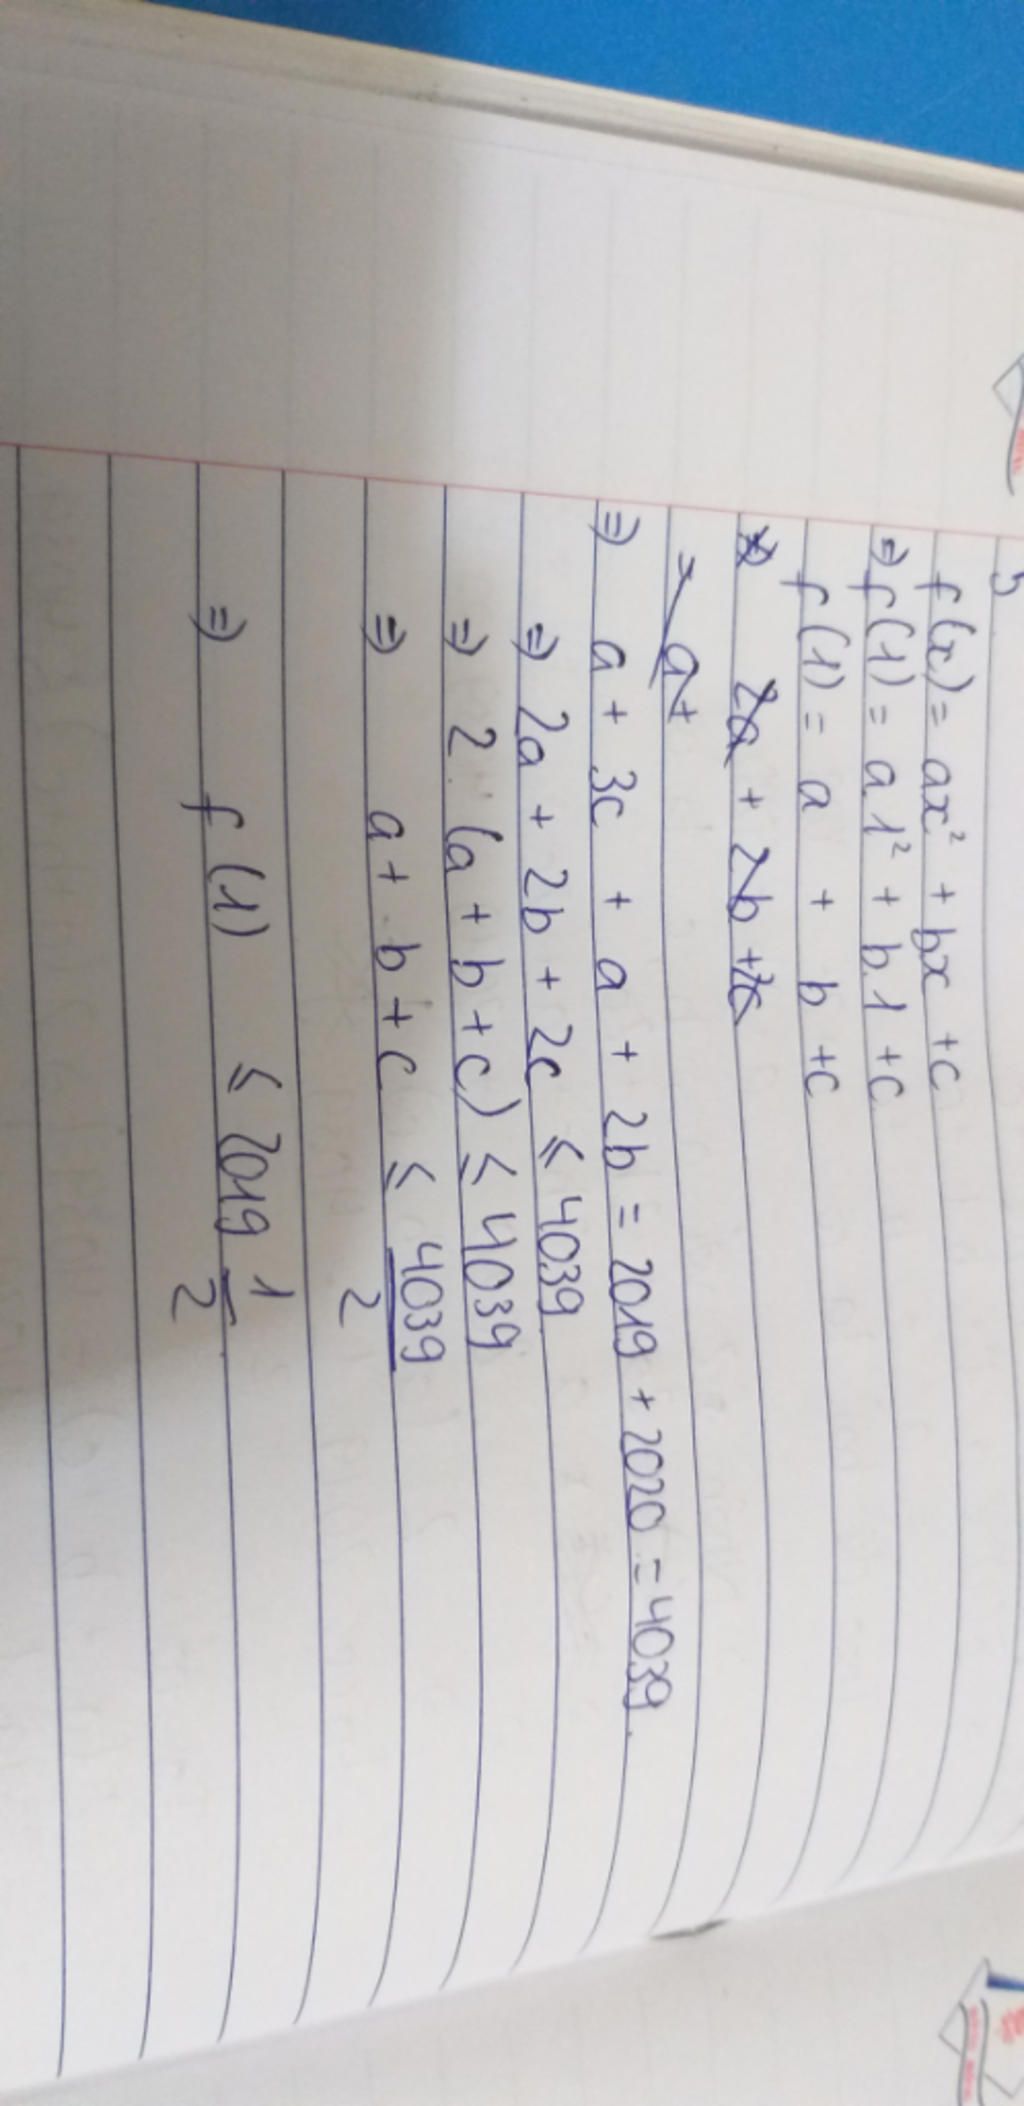 5
f(x) = ax² + bx + c
⇒ f(1) = a.1² + b.1 + c
f(1) = a + b + c
⇒ 2a + 2b + 2c
→ a+
⇒ a + 3c + a + 2b = 2019 + 2020 = 4039.
⇒ 2a + 2b + 2c ≤ 4039
⇒ 2.(a + b + c) ≤ 4039
⇒ a + b + c ≤ 4039/2
⇒ f(1) ≤ 2019 1/2